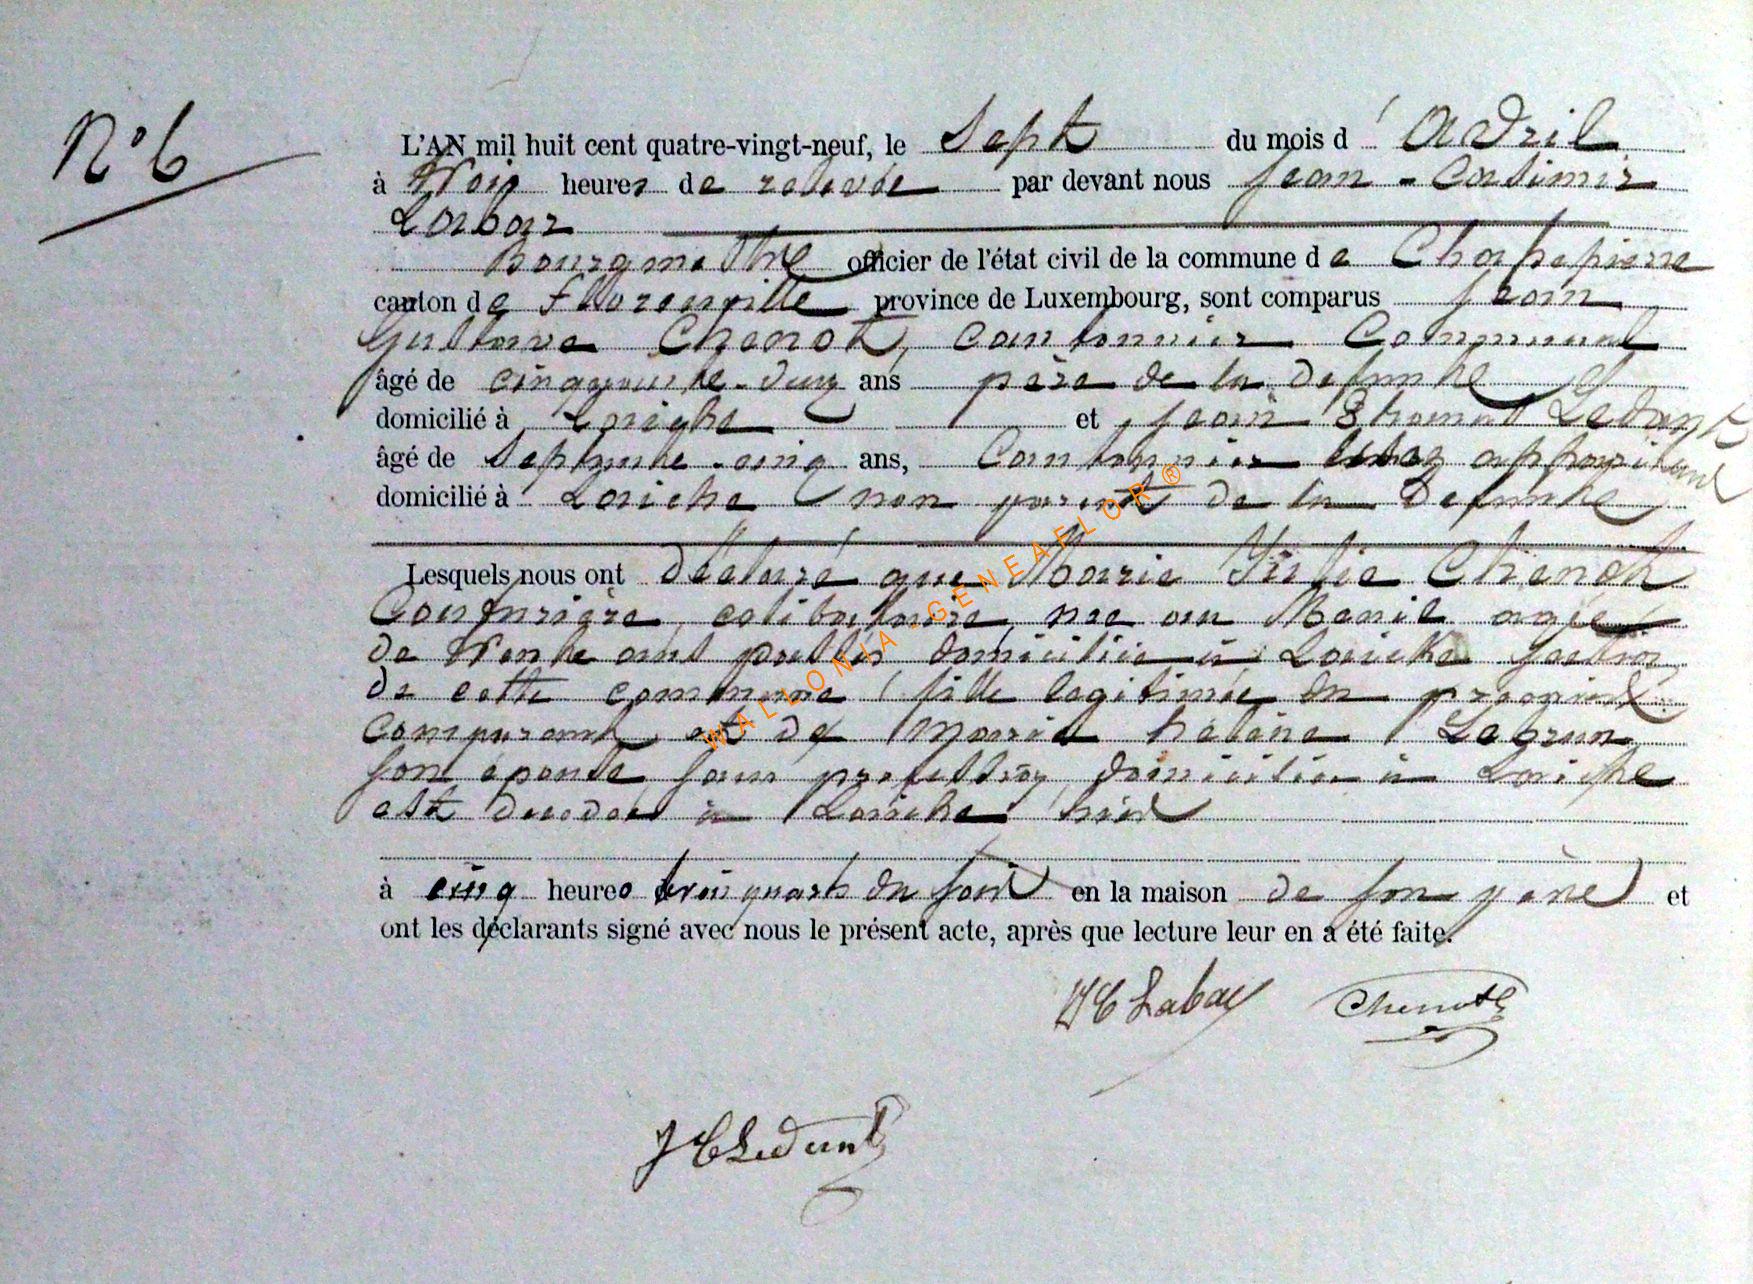 N° 6
L'AN mil huit cent quatre-vingt-neuf, le Sept du mois d'Avril
à trois heures de relevée par devant nous Jean-Casimir
Labar
Bourgmestre officier de l'état civil de la commune de Chassepierre
canton de Florenville province de Luxembourg, sont comparus Jean
Gustave Chenot, cantonnier Communal
âgé de cinquante-deux ans père de la défunte et
domicilié à Laiche et Jean Thomas Ledant
âgé de Septante-cinq ans, Cantonnier
domicilié à Laiche non parent de la défunte
Lesquels nous ont déclaré que Marie Julie Chenot
Couturière, célibataire, née au Menil agée
de trente ans passés domiciliée à Laiche section
de cette commune, fille legitime du premier
comparant et de Marie hélène Legrun
son épouse sans profession, domiciliée à Laiche
est décédée à Laiche hier
à cinq heures trois quarts du soir en la maison de son père et
ont les déclarants signé avec nous le présent acte, après que lecture leur en a été faite.
JC Labar Chenot
JTLedant
WALLONIA-GENEAFLOR®